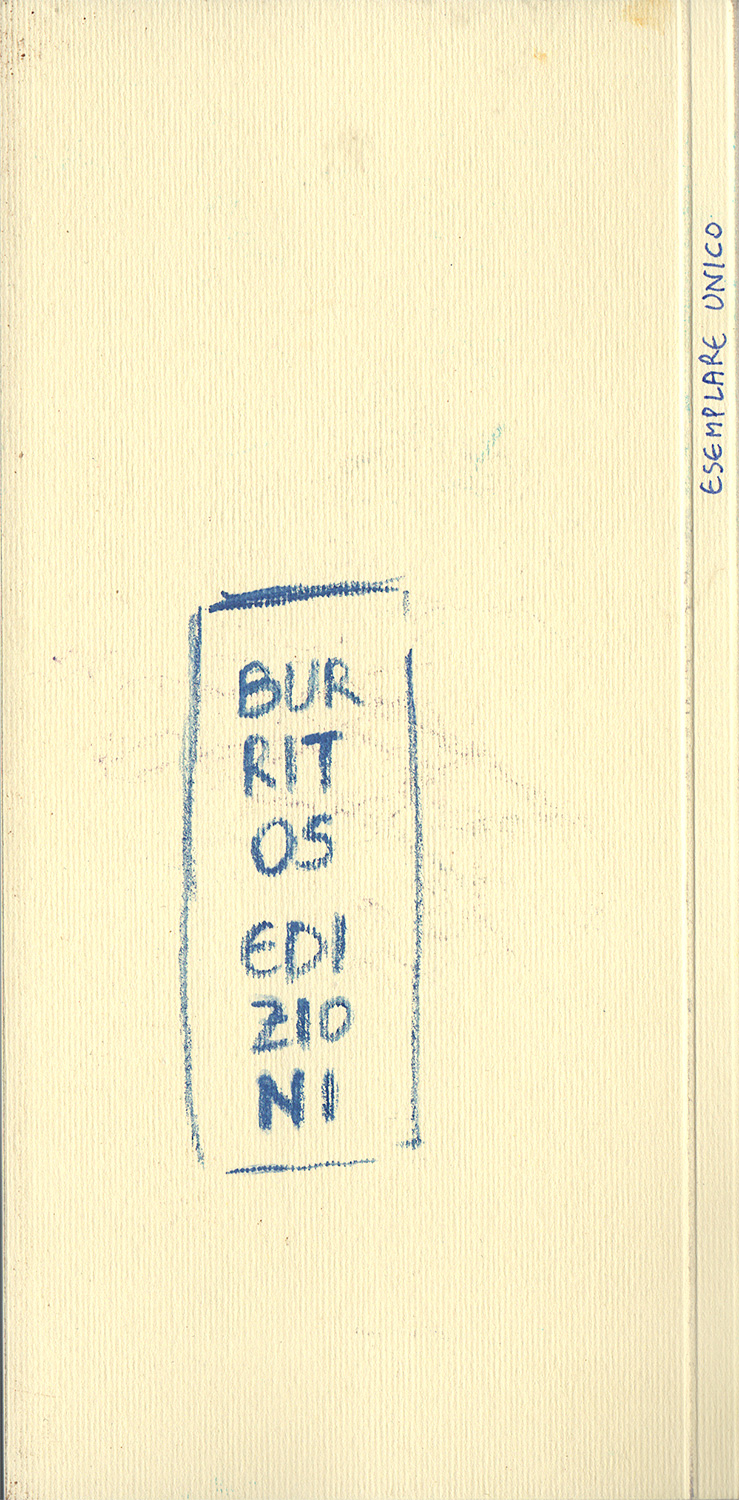 BUR
RIT
OS
EDI
ZIO
NI
ESEMPLARE UNICO